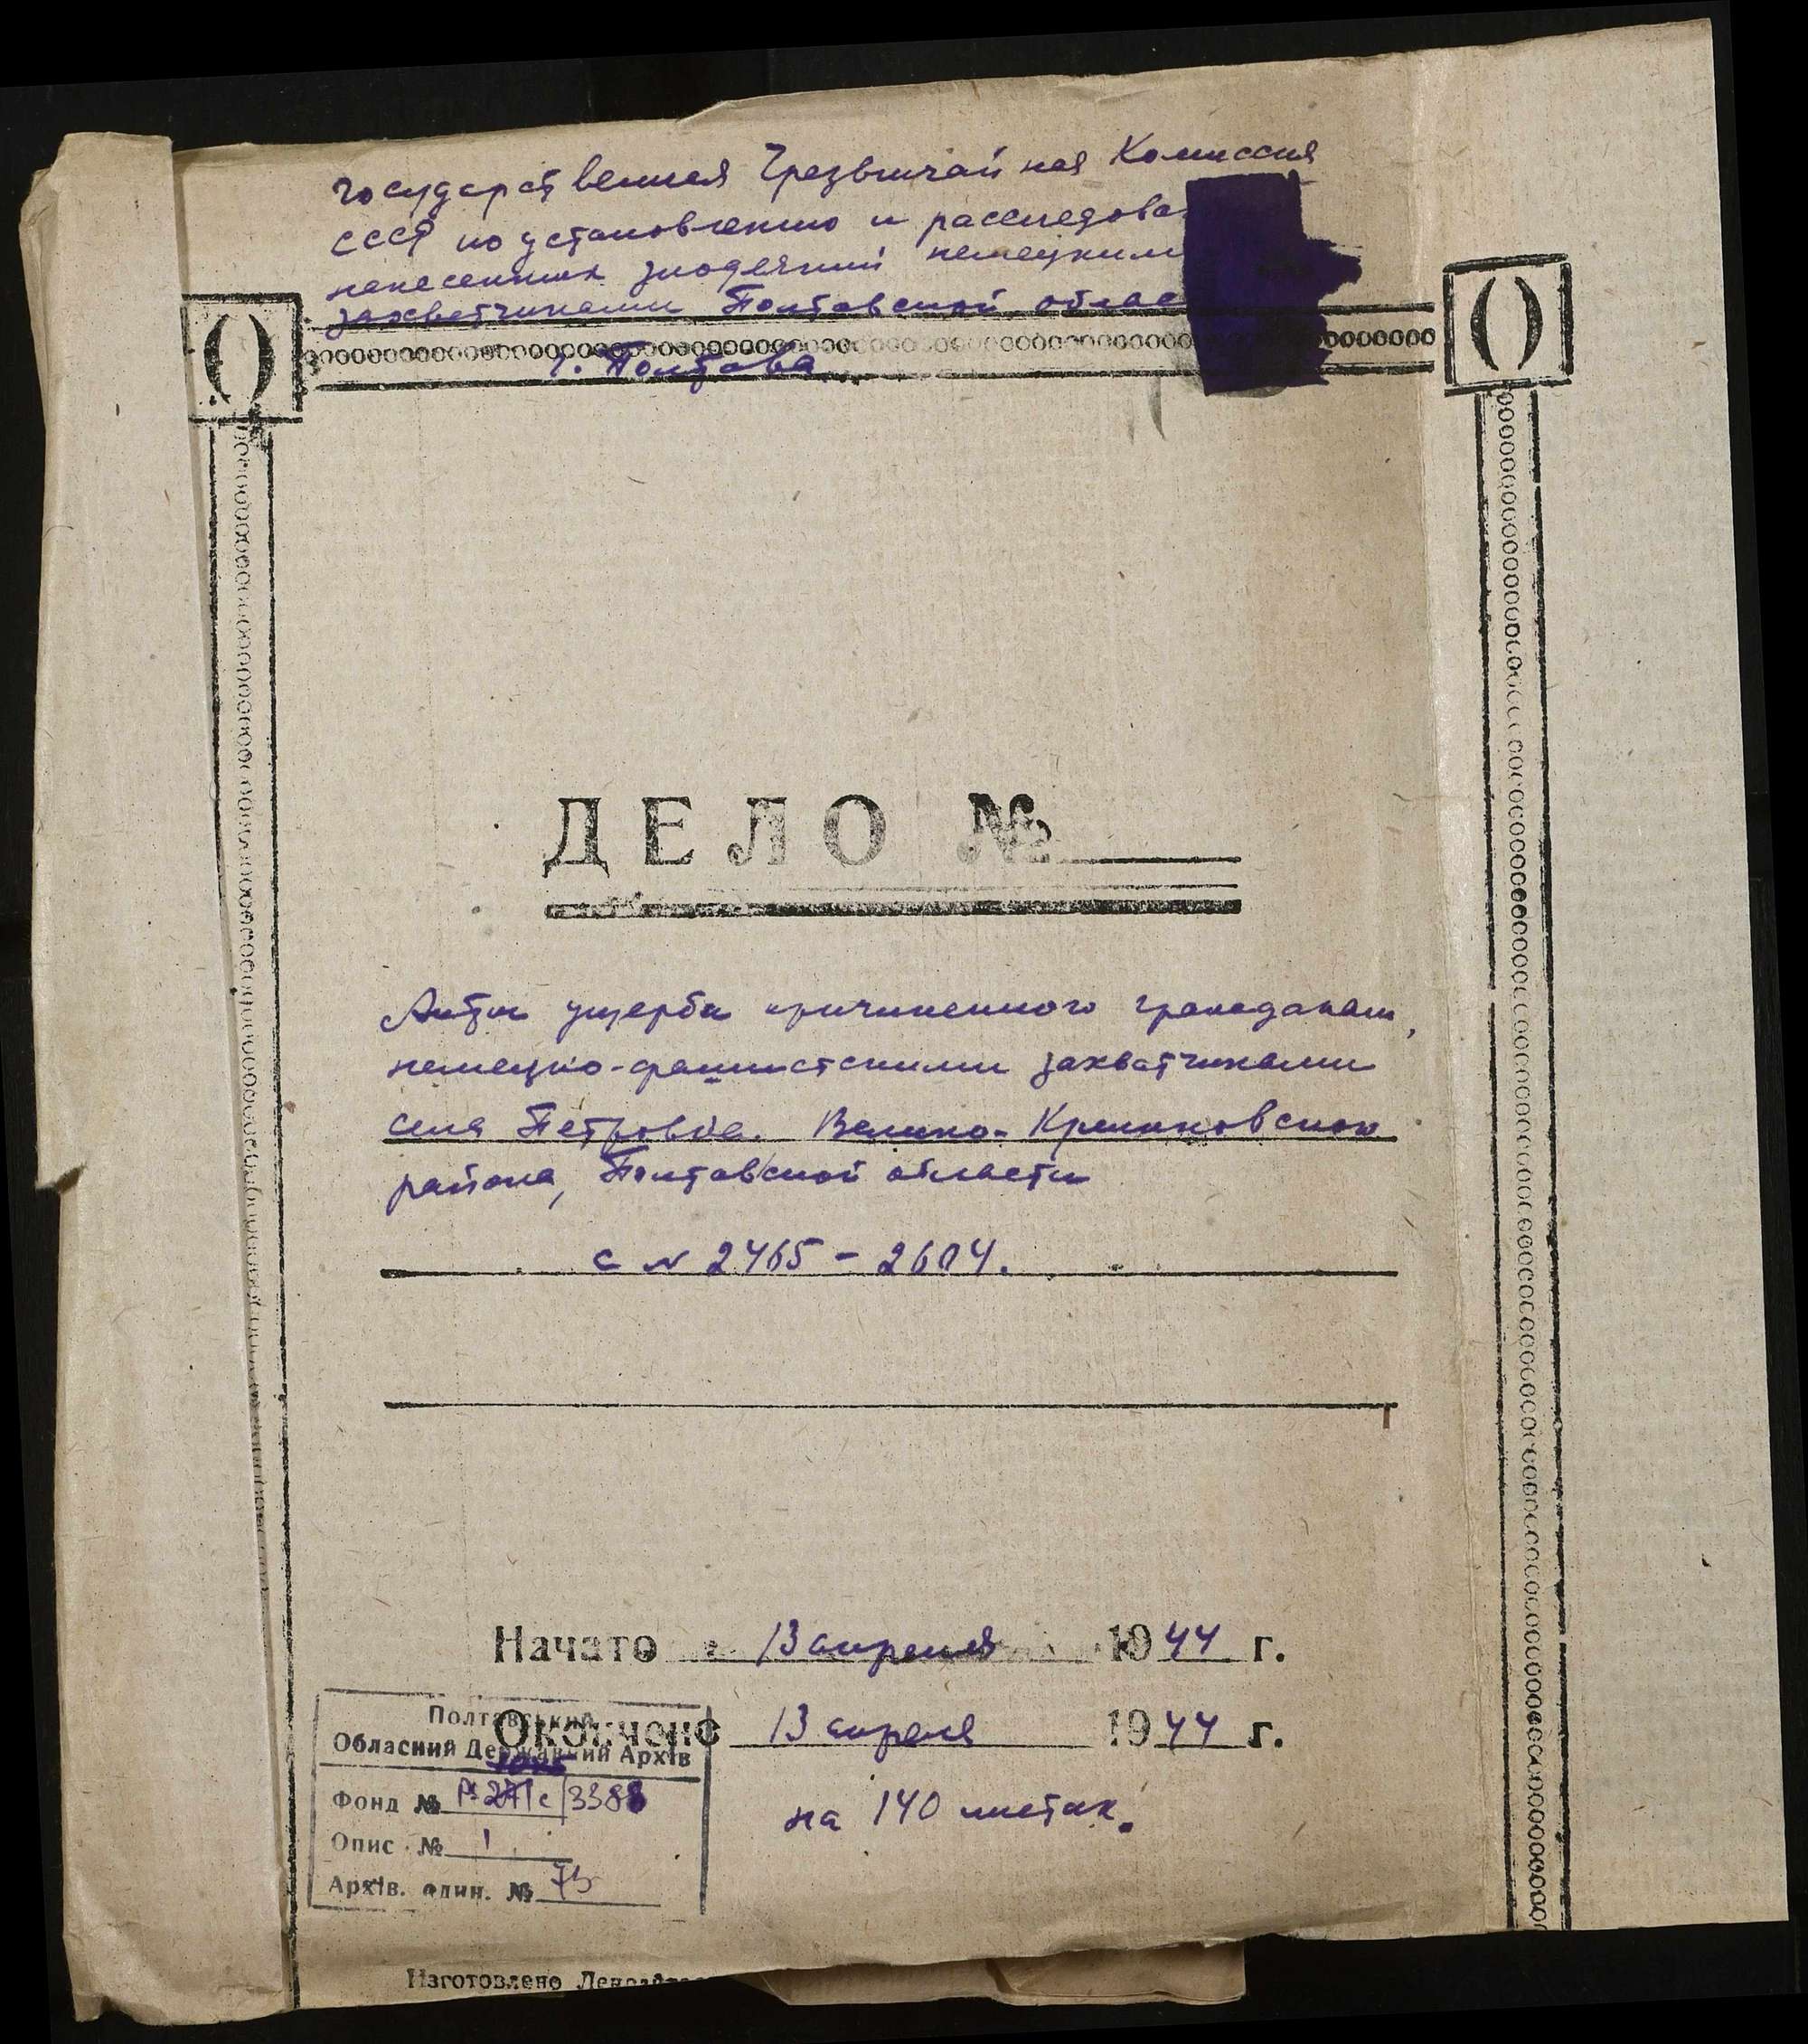 Государственная Чрезвычайная Комиссия
СССР по установлению и расследова
нанесенных злодеяний немецкими
захватчиками Полтавской облас
г. Полтава
ДЕЛО №
Акты ущерба причиненного гражданам,
немецко-фашистскими захватчиками
села Петровка. Велико-Крынковского
района, Полтавской области
с № 2465 - 2604.
Начато 13 апреля 1944 г.
Окончено 13 апреля 1944 г.
на 140 листах.
Полтавський
Обласний Державний Архів
Фонд № /3388
Опис № 1
Архів. один. № 73
Изготовлено